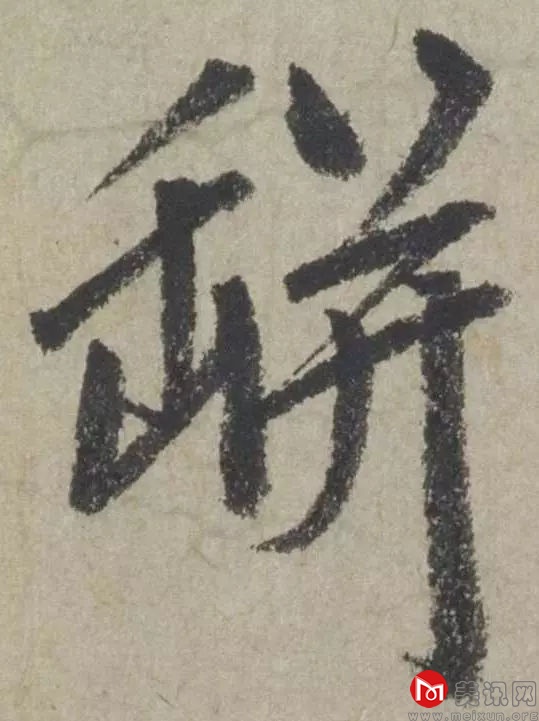 缾
美讯网
www.meixun.org